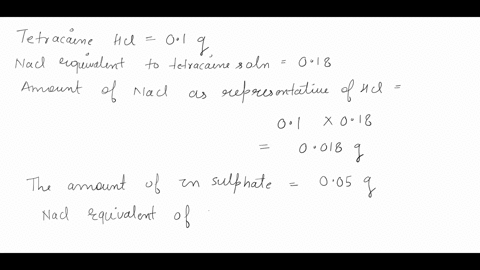 Tetracaine Hcl = 0.1 g
Nacl equivalent to tetracaine soln = 0.18
Amount of Nacl as representative of Hcl =
0.1 × 0.18
= 0.018 g
The amount of zn sulphate = 0.05 g
Nacl equivalent of